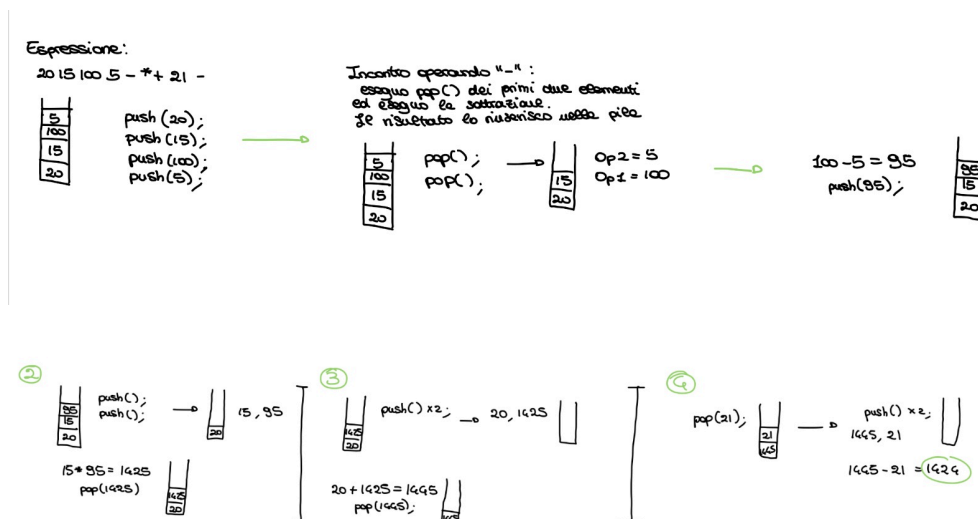 Espressione:
20 15 100 5 - * + 21 -
5
100
15
20
push(20);
push(15);
push(100);
push(5);
Incontro operando "-":
eseguo pop() dei primi due elementi
ed eseguo la sottrazione.
Il risultato lo riinserisco nella pila
5
100
15
20
pop();
pop();
15
20
Op2 = 5
Op1 = 100
100-5 = 95
push(95);
95
15
20
2
95
15
20
push();
push();
20
15, 95
15 * 95 = 1425
pop(1425)
1425
20
3
1425
20
push() x2;
20, 1425
20 + 1425 = 1445
pop(1445);
4
pop(21);
21
push() x2;
1445, 21
1445 - 21 = 1424